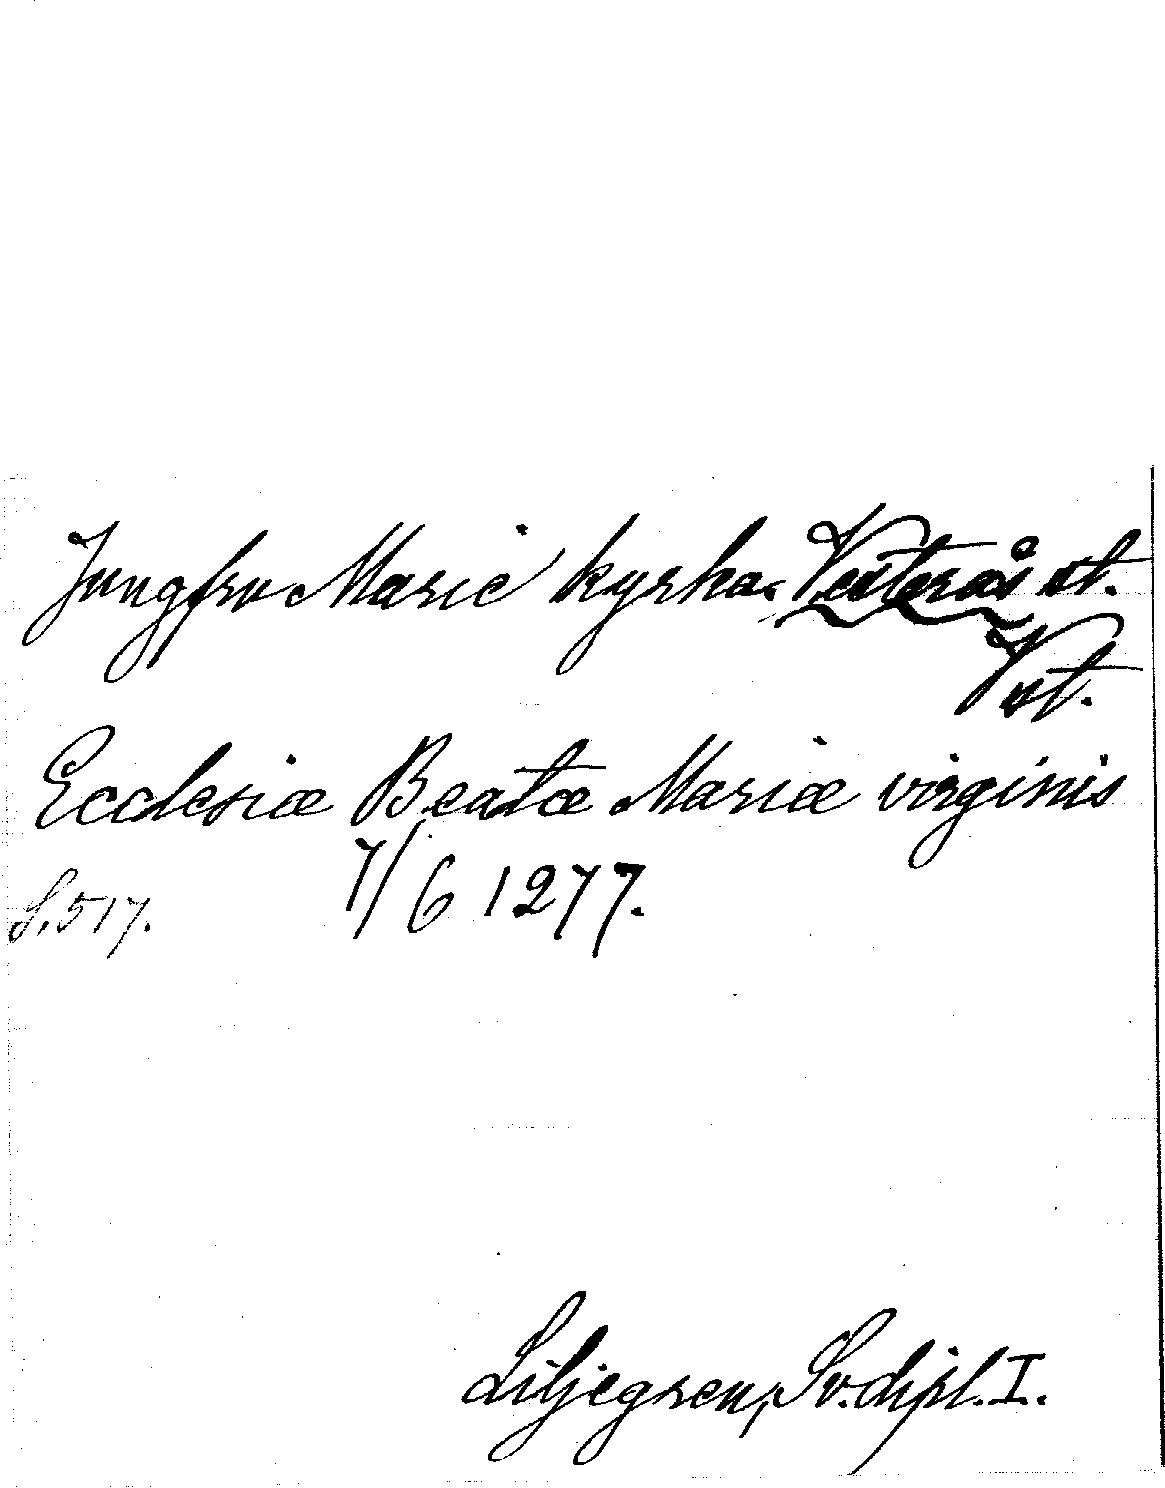 Jungfru Marie kyrka. Västerås st.
Vst.
Ecclesiæ Beatæ Mariæ virginis
S. 517. 7/6 1277.
Liljegren, Sv. dipl. I.